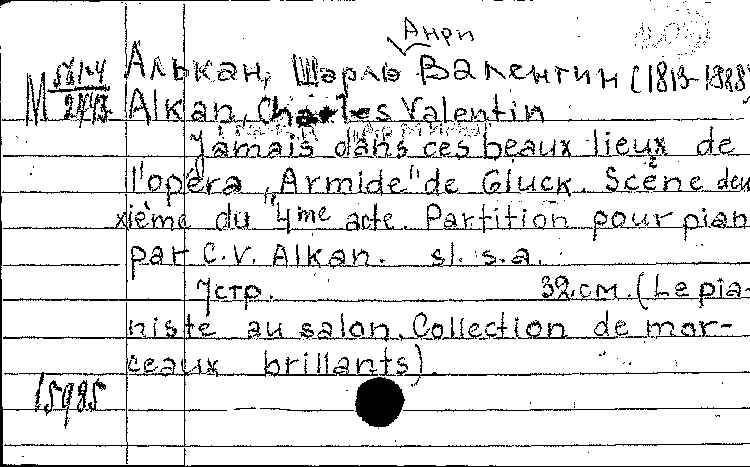 Анри
Алькан, Шарль Валентин (1813-1888)
М 561-4
Alkan, Charles Valentin
Jamais dans ces beaux lieux de
l'opéra „Armide" de Gluck. Scène deu
xième du "4me acte. Partition pour pian
par C.V. Alkan. sl. s.a.
7 стр. 32 см. (Le pia-
niste au salon. Collection de mor-
ceaux brillants).
15985